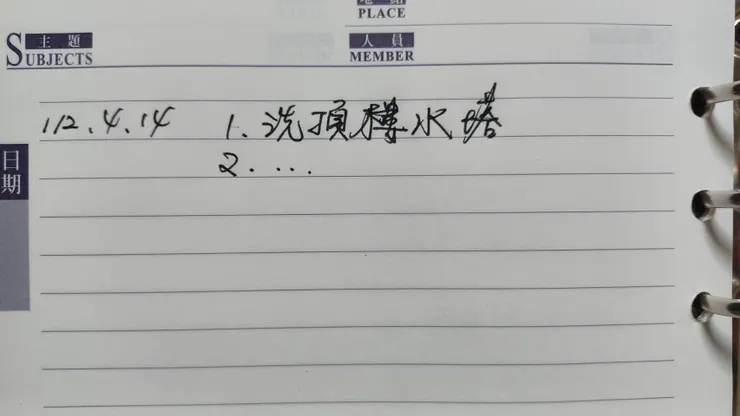 地點
PLACE
主題 人員
SUBJECTS MEMBER
112.4.14 1.洗頂樓水塔
日期 2.....